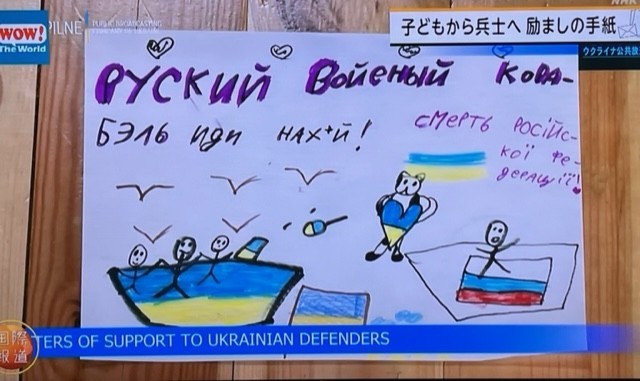 WOW!
The World
PILNE
PUBLIC BROADCASTING
COMPANY OF UKRAINE
NHK
子どもから兵士へ 励ましの手紙
ウクライナ公共放
РУСКИЙ ВОЙЕНЫЙ КОРА-
БЭЛЬ ИДИ НАХ*Й!
СМЕРТЬ РОСІЙС-
КОЇ ФЕ-
ДЕРАЦІЇ!
国際
報道
TERS OF SUPPORT TO UKRAINIAN DEFENDERS